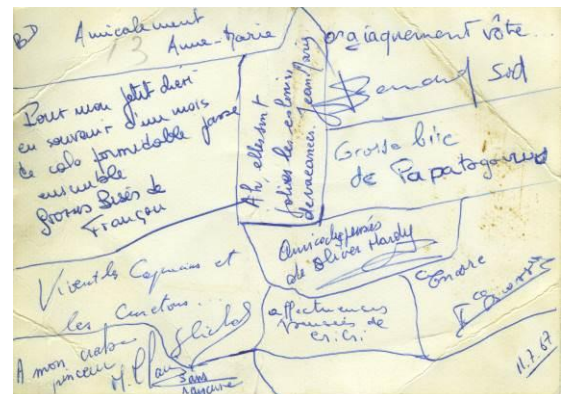 BD
Amicalement
13
Anne-Marie
orgiaquement vôtre...
Bernard Sid
Pour mon petit chéri
en souvenir d'un mois
de colo formidable passé
ensemble
Grosses Bises de
Françou
Ah, elles sont
jolies les colonies
de vacances. Jean Marc
Grosse bise
de Papatagoune
Amicales pensées
de Oliver Hardy
Vivent les Copains et
les Curetons...
affectueuses
pensées de
Cri.Cri.
Encore
A mon crabe
pinceur
sans
rancune
11.7.67